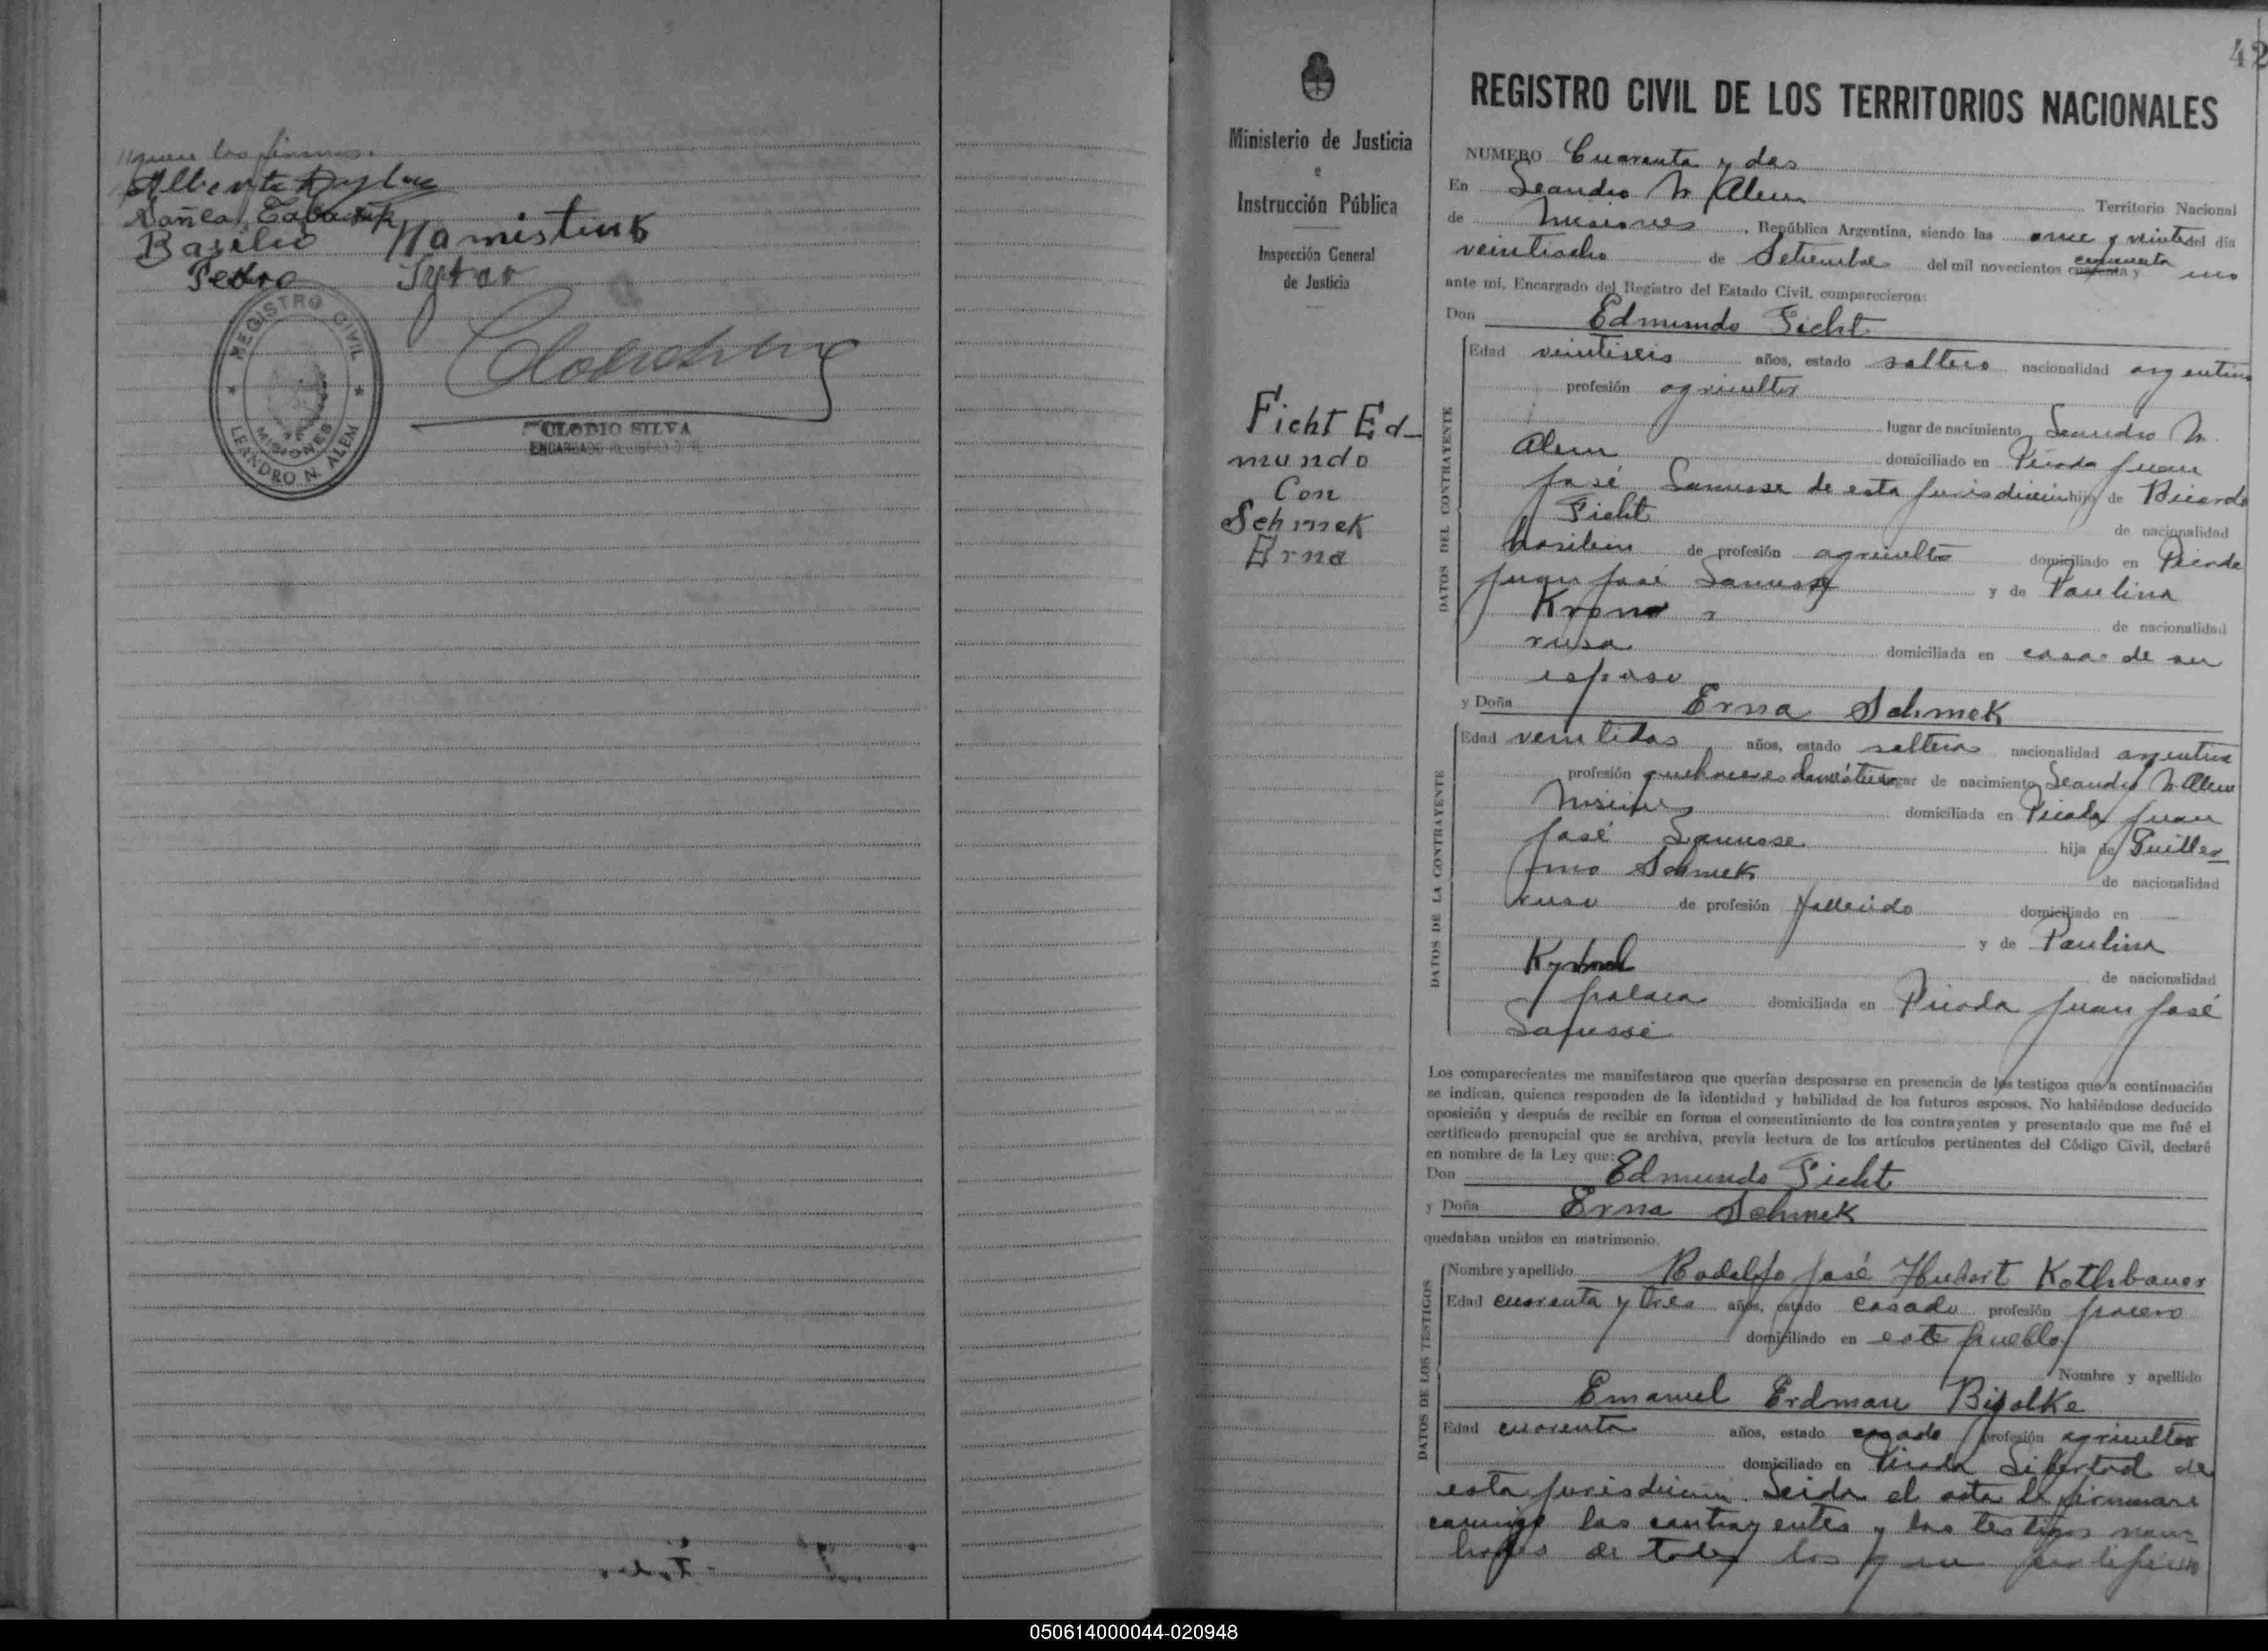 siguen las firmas.
Alberto
Basilio Hamistiuk
Pedro Sytar
REGISTRO CIVIL
MISIONES
LEANDRO N. ALEM
CLODIO SILVA
ENCARGADO REGISTRO CIVIL
42
Ministerio de Justicia
e
Instrucción Pública
Inspección General
de Justicia
Ficht Ed-
mundo
Con
Schmek
Erna
REGISTRO CIVIL DE LOS TERRITORIOS NACIONALES
NUMERO Cuarenta y dos
En Leandro N. Alem Territorio Nacional
de Misiones, República Argentina, siendo las once y veinte del día
veintiocho de Setiembre del mil novecientos cuarenta y cincuenta uno
ante mí, Encargado del Registro del Estado Civil, comparecieron:
Don Edmundo Ficht
DATOS DEL CONTRAYENTE
Edad veintiseis años, estado soltero nacionalidad argentina
profesión agricultor
lugar de nacimiento Leandro N.
Alem domiciliado en Picada Juan
José Lanusse de esta jurisdicción hijo de Ricardo
Ficht de nacionalidad
de profesión agricultor domiciliado en Picada
Juan José Lanusse y de Paulina
de nacionalidad
rusa domiciliada en casa de su
esposo
y Doña Erna Schmek
DATOS DE LA CONTRAYENTE
Edad veintidos años, estado soltera nacionalidad argentina
profesión quehaceres domésticos lugar de nacimiento Leandro N. Alem
Misiones domiciliada en Picada Juan
José Lanusse hija de Guiller
mo Schmek de nacionalidad
ruso de profesión fallecido domiciliado en
y de Paulina
de nacionalidad
polaca domiciliada en Picada Juan José
Lanusse
Los comparecientes me manifestaron que querían desposarse en presencia de los testigos que a continuación
se indican, quienes responden de la identidad y habilidad de los futuros esposos. No habiéndose deducido
oposición y después de recibir en forma el consentimiento de los contrayentes y presentado que me fué el
certificado prenupcial que se archiva, previa lectura de los artículos pertinentes del Código Civil, declaré
en nombre de la Ley que:
Don Edmundo Ficht
y Doña Erna Schmek
quedaban unidos en matrimonio.
DATOS DE LOS TESTIGOS
Nombre y apellido Rodolfo José Hubert Kothbauer
Edad cuarenta y tres años, estado casado profesión pocero
domiciliado en este pueblo
Nombre y apellido
Emanuel Erdman Bigalke
Edad cuarenta años, estado casado profesión agricultor
domiciliado en Picada Libertad de
esta jurisdicción. Leida el acta la firmaron
conmigo los contrayentes y los testigos nom
brados de todos los que
050614000044-020948